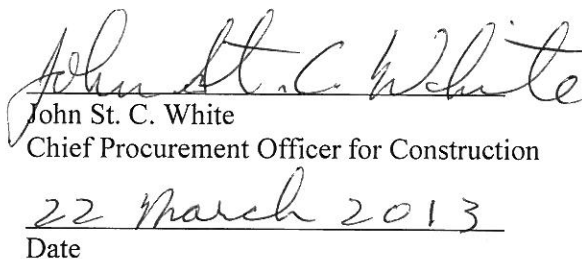 John St. C. White
John St. C. White
Chief Procurement Officer for Construction
22 March 2013
Date